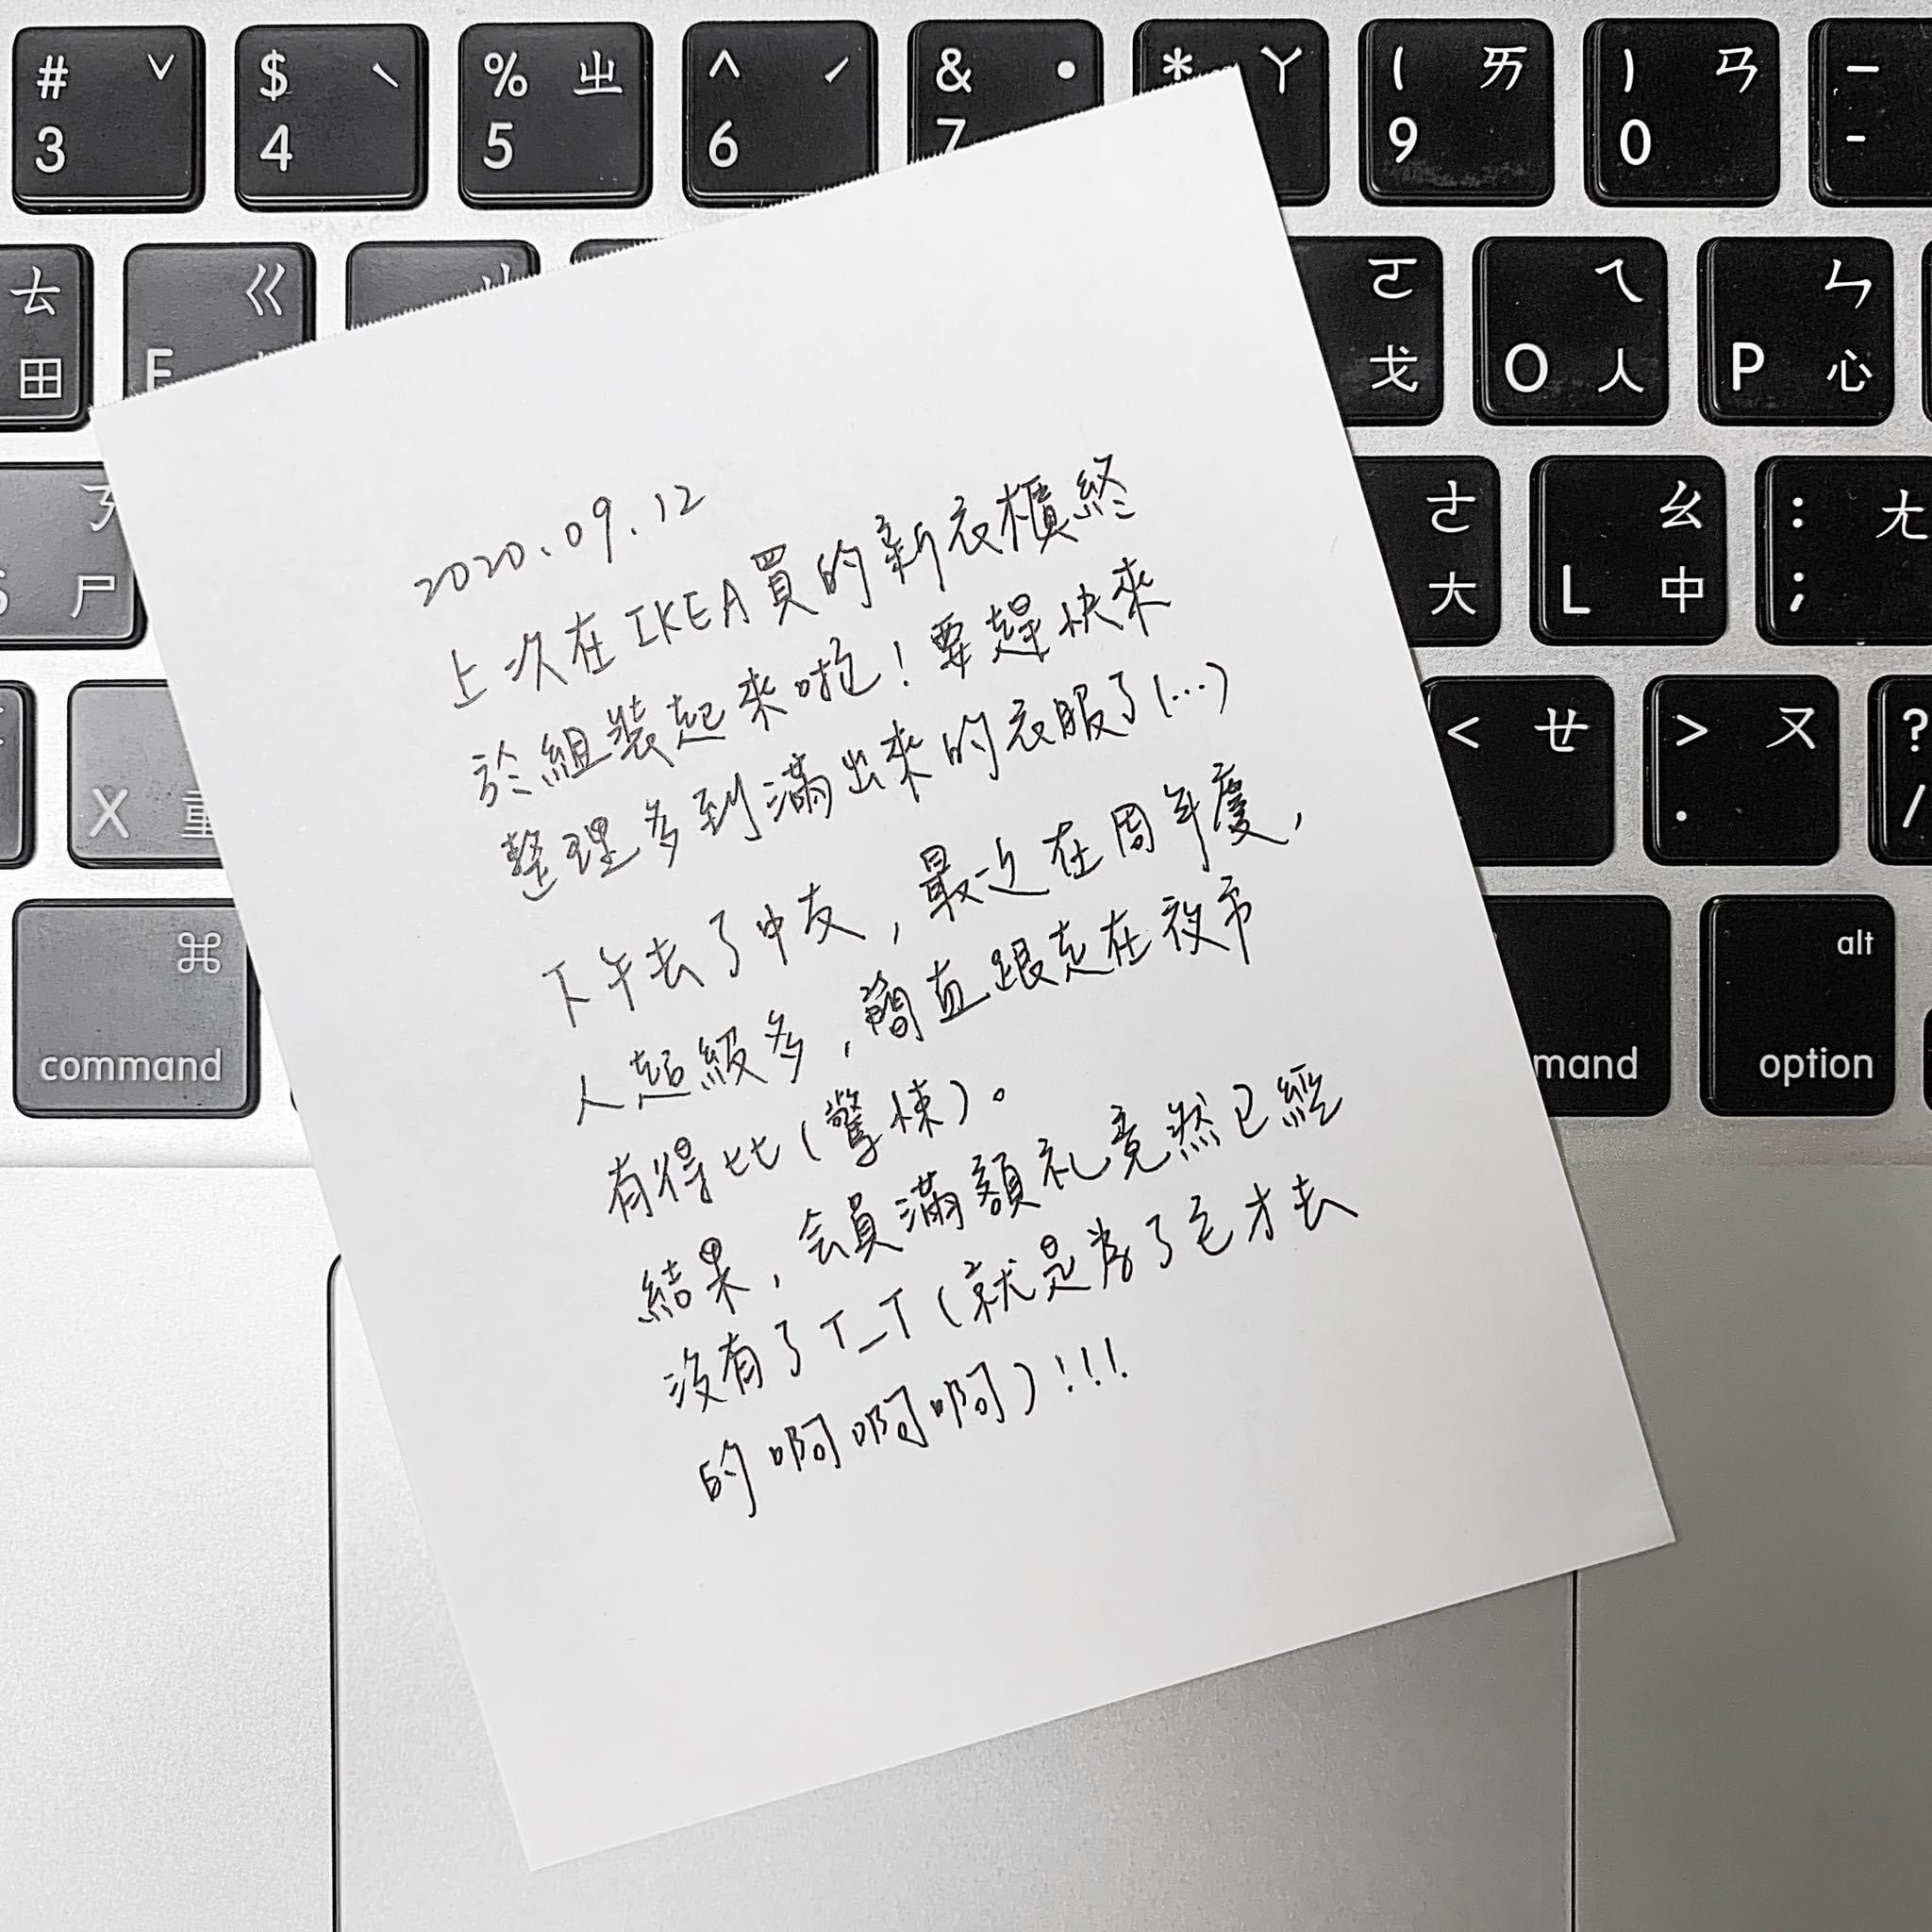 # ˇ $ ˋ % ㄓ ^ ˊ & ˙ * ㄚ ( ㄞ ) ㄢ —
3 4 5 6 7 9 0 -
ㄊ ㄍ ㄛ ㄟ ㄣ
田 E 戈 O 人 P 心
ㄋ ㄜ ㄠ : ㄤ
S 尸 大 L 中 ;
< ㄝ > ㄡ ?
X 重 . /
⌘ alt
command mand option
2020.09.12
上次在IKEA買的新衣櫃終
於組裝起來啦!要趕快來
整理多到滿出來的衣服了(...)
下午去了中友,最近在周年慶,
人超級多,簡直跟走在夜市
有得比(驚悚)。
結果,会員滿額礼竟然已經
沒有了T_T(就是為了它才去
的啊啊啊)!!!